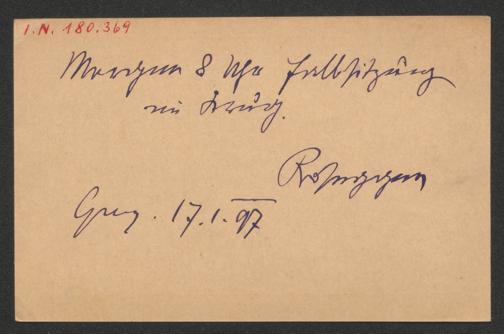 I.N. 180.369
Morgen 8 Uhr Halbsitzung
im Krug.
Rosegger
Graz. 17.1.97